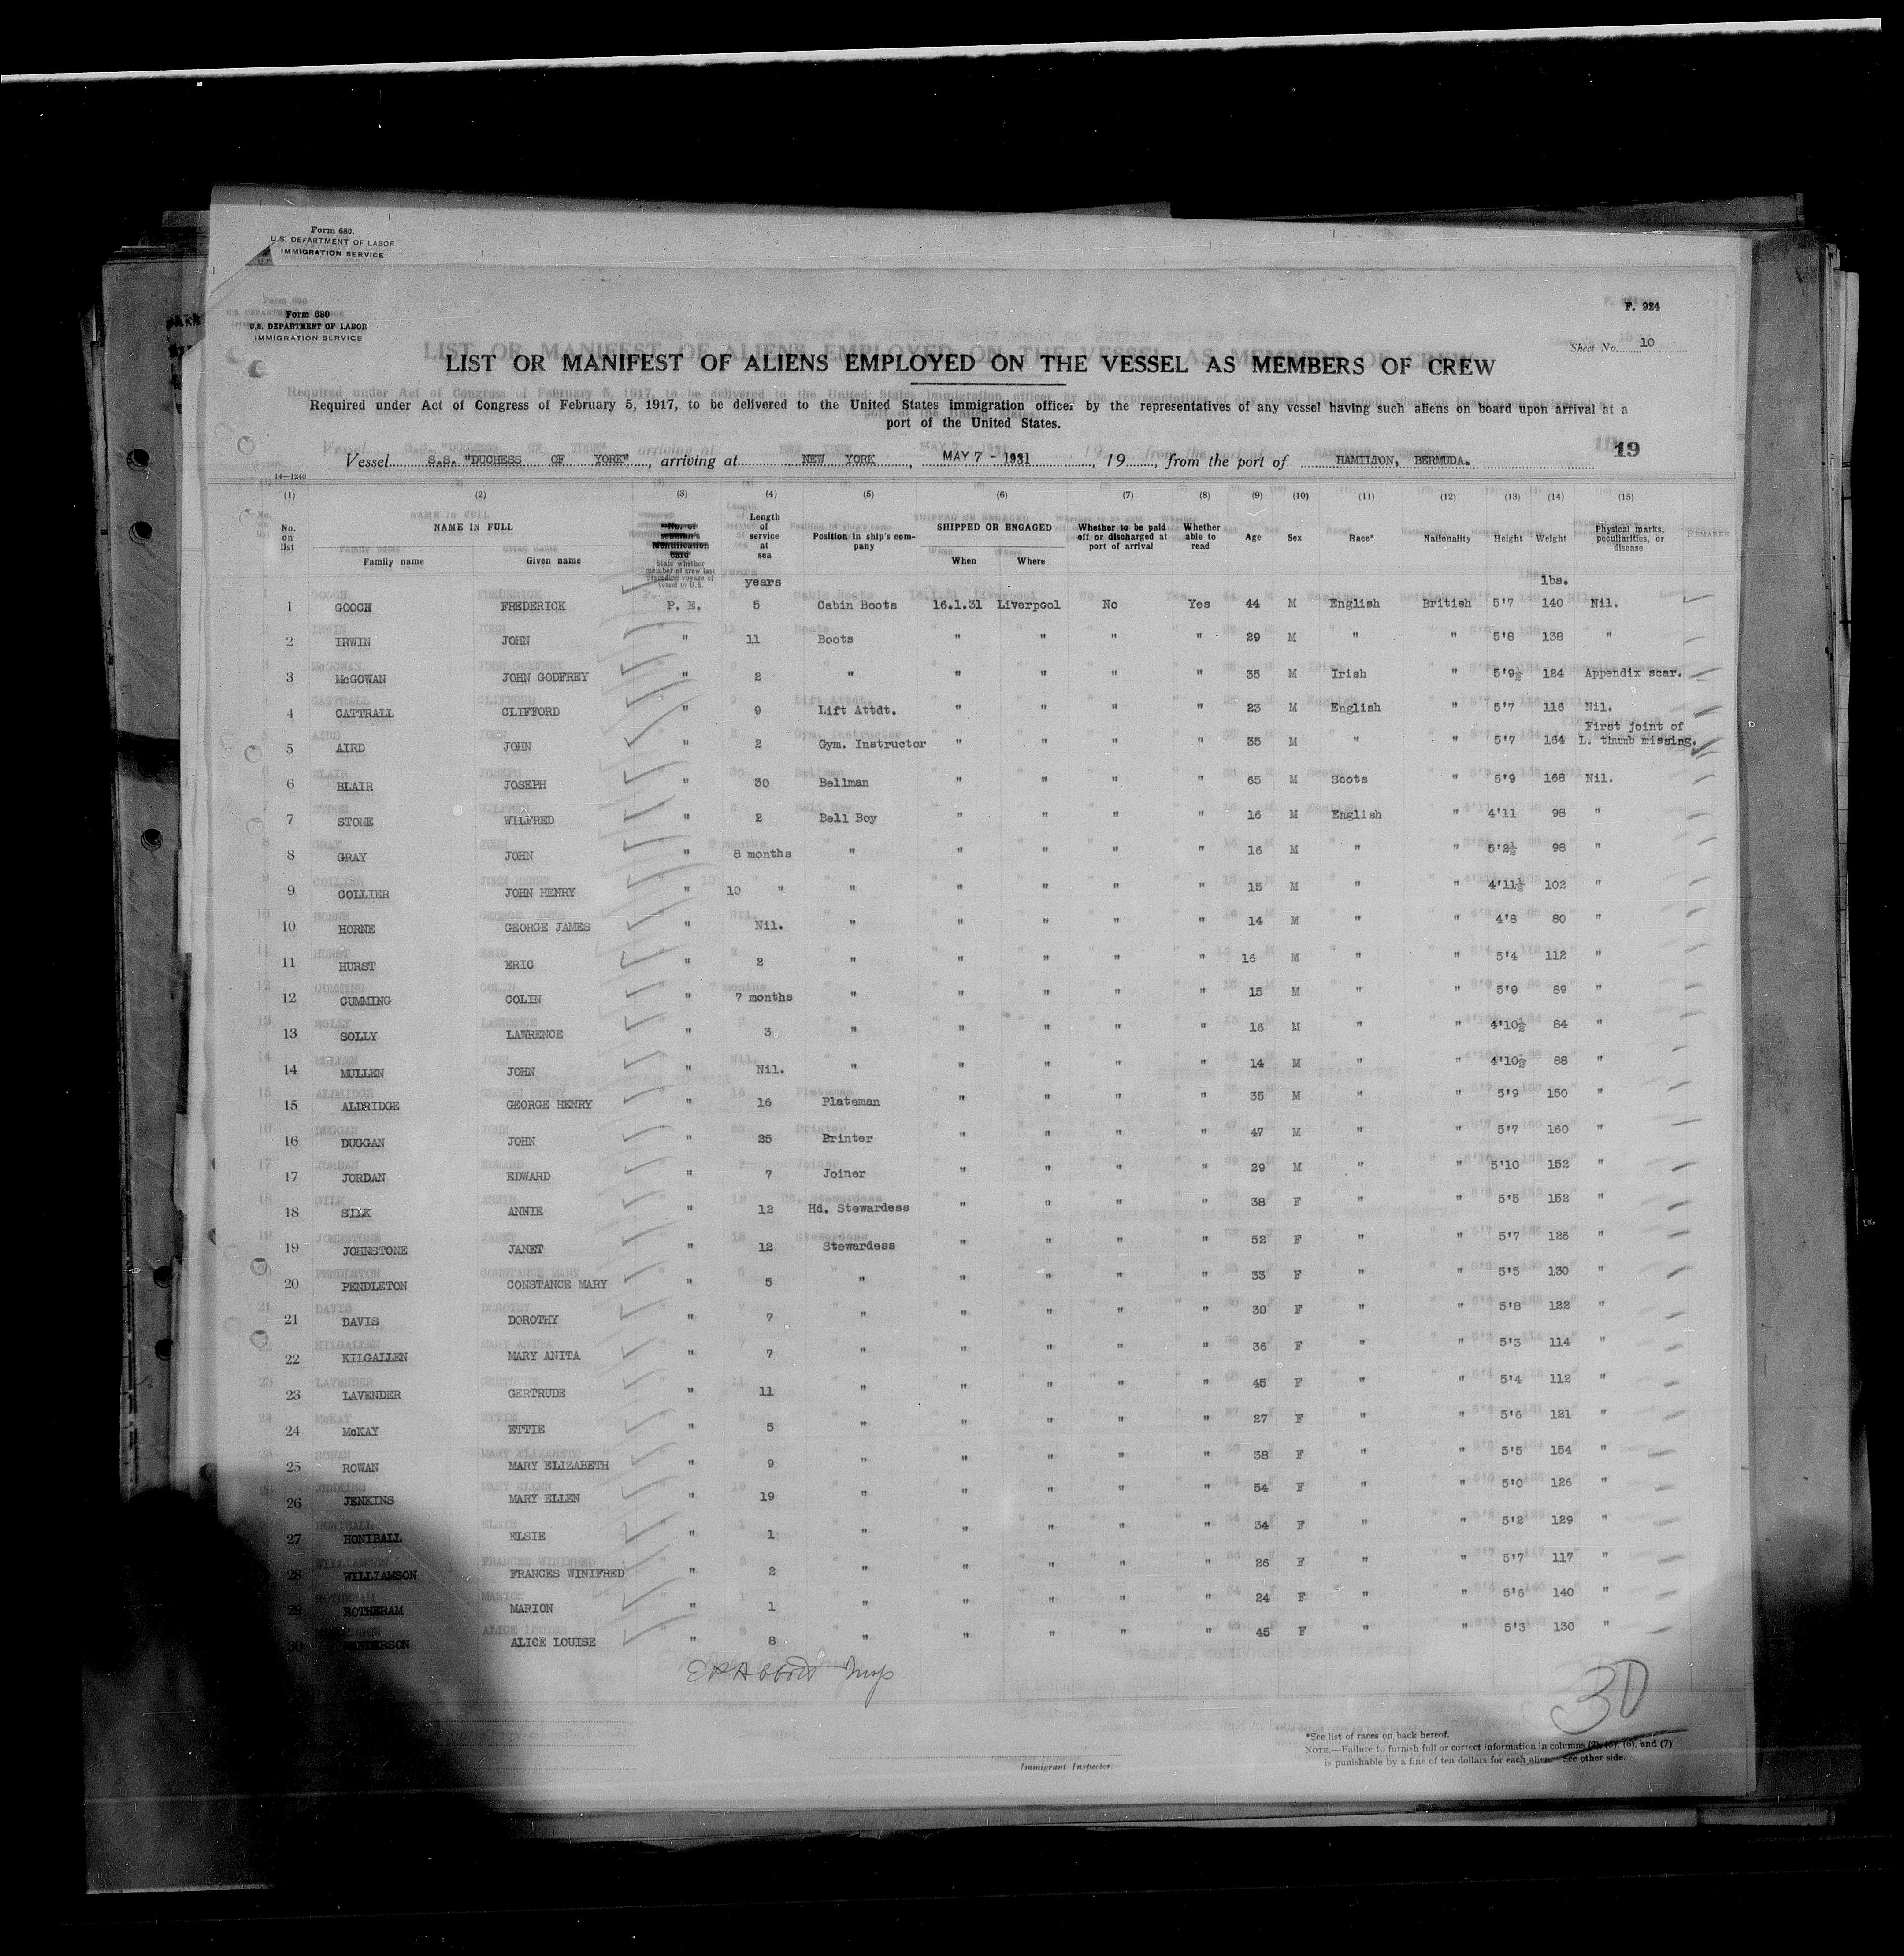 Form 680.
U.S. DEPARTMENT OF LABOR
IMMIGRATION SERVICE
F. 924
Form 680
U.S. DEPARTMENT OF LABOR
IMMIGRATION SERVICE
Sheet No. 10
LIST OR MANIFEST OF ALIENS EMPLOYED ON THE VESSEL AS MEMBERS OF CREW
Required under Act of Congress of February 5, 1917, to be delivered to the United States immigration officer by the representatives of any vessel having such aliens on board upon arrival at a
port of the United States.
19
Vessel S.S. "DUCHESS OF YORK", arriving at NEW YORK, MAY 7 - 1931, 19, from the port of HAMILTON, BERMUDA.
14—1240
(1) (2) (3) (4) (5) (6) (7) (8) (9) (10) (11) (12) (13) (14) (15)
No. on list NAME IN FULL No. of seaman's identification card State whether member of crew last preceding voyage of vessel to U.S. Length of service at sea Position in ship's company SHIPPED OR ENGAGED Whether to be paid off or discharged at port of arrival Whether able to read Age Sex Race* Nationality Height Weight Physical marks, peculiarities, or disease REMARKS
Family name Given name When Where
years lbs.
1 GOOCH FREDERICK P. E. 5 Cabin Boots 16.1.31 Liverpool No Yes 44 M English British 5'7 140 Nil.
2 IRWIN JOHN " 11 Boots " " " " 29 M " " 5'8 138 "
3 McGOWAN JOHN GODFREY " 2 " " " " " 35 M Irish " 5'9½ 124 Appendix scar.
4 CATTRALL CLIFFORD " 9 Lift Attdt. " " " " 23 M English " 5'7 116 Nil.
5 AIRD JOHN " 2 Gym. Instructor " " " " 35 M " " 5'7 164 First joint of L. thumb missing.
6 BLAIR JOSEPH " 30 Bellman " " " " 65 M Scots " 5'9 168 Nil.
7 STONE WILFRED " 2 Bell Boy " " " " 16 M English " 4'11 98 "
8 GRAY JOHN " 8 months " " " " " 16 M " " 5'2½ 98 "
9 COLLIER JOHN HENRY " 10 " " " " " " 15 M " " 4'11½ 102 "
10 HORNE GEORGE JAMES " Nil. " " " " " 14 M " " 4'8 80 "
11 HURST ERIC " 2 " " " " " 16 M " " 5'4 112 "
12 CUMMING COLIN " 7 months " " " " " 15 M " " 5'9 89 "
13 SOLLY LAWRENCE " 3 " " " " " 16 M " " 4'10½ 84 "
14 MULLEN JOHN " Nil. " " " " " 14 M " " 4'10½ 88 "
15 ALDRIDGE GEORGE HENRY " 16 Plateman " " " " 35 M " " 5'9 150 "
16 DUGGAN JOHN " 25 Printer " " " " 47 M " " 5'7 160 "
17 JORDAN EDWARD " 7 Joiner " " " " 29 M " " 5'10 152 "
18 SILK ANNIE " 12 Hd. Stewardess " " " " 38 F " " 5'5 152 "
19 JOHNSTONE JANET " 12 Stewardess " " " " 52 F " " 5'7 126 "
20 PENDLETON CONSTANCE MARY " 5 " " " " " 33 F " " 5'5 130 "
21 DAVIS DOROTHY " 7 " " " " " 30 F " " 5'8 122 "
22 KILGALLEN MARY ANITA " 7 " " " " " 36 F " " 5'3 114 "
23 LAVENDER GERTRUDE " 11 " " " " " 45 F " " 5'4 112 "
24 McKAY ETTIE " 5 " " " " " 27 F " " 5'6 121 "
25 ROWAN MARY ELIZABETH " 9 " " " " " 38 F " " 5'5 154 "
26 JENKINS MARY ELLEN " 19 " " " " " 54 F " " 5'0 126 "
27 HONIBALL ELSIE " 1 " " " " " 34 F " " 5'2 129 "
28 WILLIAMSON FRANCES WINIFRED " 2 " " " " " 26 F " " 5'7 117 "
29 ROTHERAM MARION " 1 " " " " " 24 F " " 5'6 140 "
30 ALICE LOUISE " 8 " " " " " 45 F " " 5'3 130 "
30
Immigrant Inspector.
*See list of races on back hereof.
NOTE.—Failure to furnish full or correct information in columns (2), (5), (6), and (7)
is punishable by a fine of ten dollars for each alien. See other side.